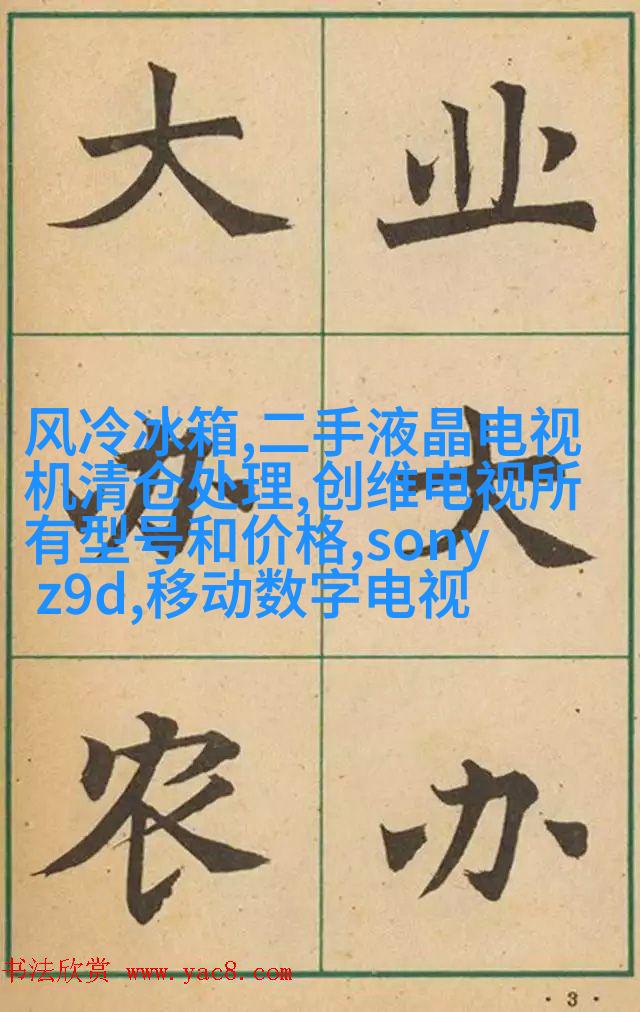 大办农
业大办
风冷冰箱,二手液晶电视
机清仓处理,创维电视所
有型号和价格,sony
z9d,移动数字电视
书法欣赏 www.yac8.com
·3·